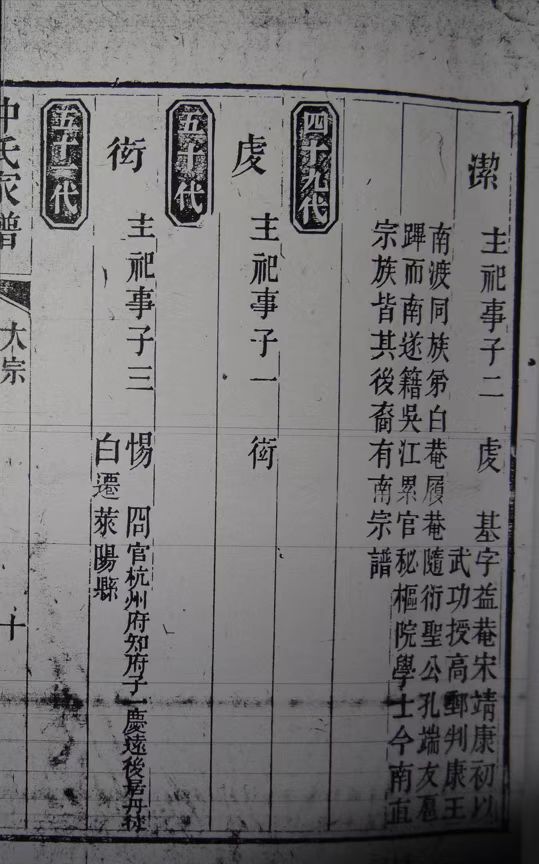 潔 主祀事子二 虔 基字益菴宋靖康初以
武功授高郵判康王
南渡同族弟白菴履菴隨衍聖公孔端友扈
蹕而南遂籍吳江累官秘樞院學士今南直
宗族皆其後裔有南宗譜
四十九代
虔 主祀事子一
五十代
主祀事子三 惕 官杭州府知府子一慶遠後居丹徒
白遷萊陽縣
五十一代
仲氏家譜 大宗 十